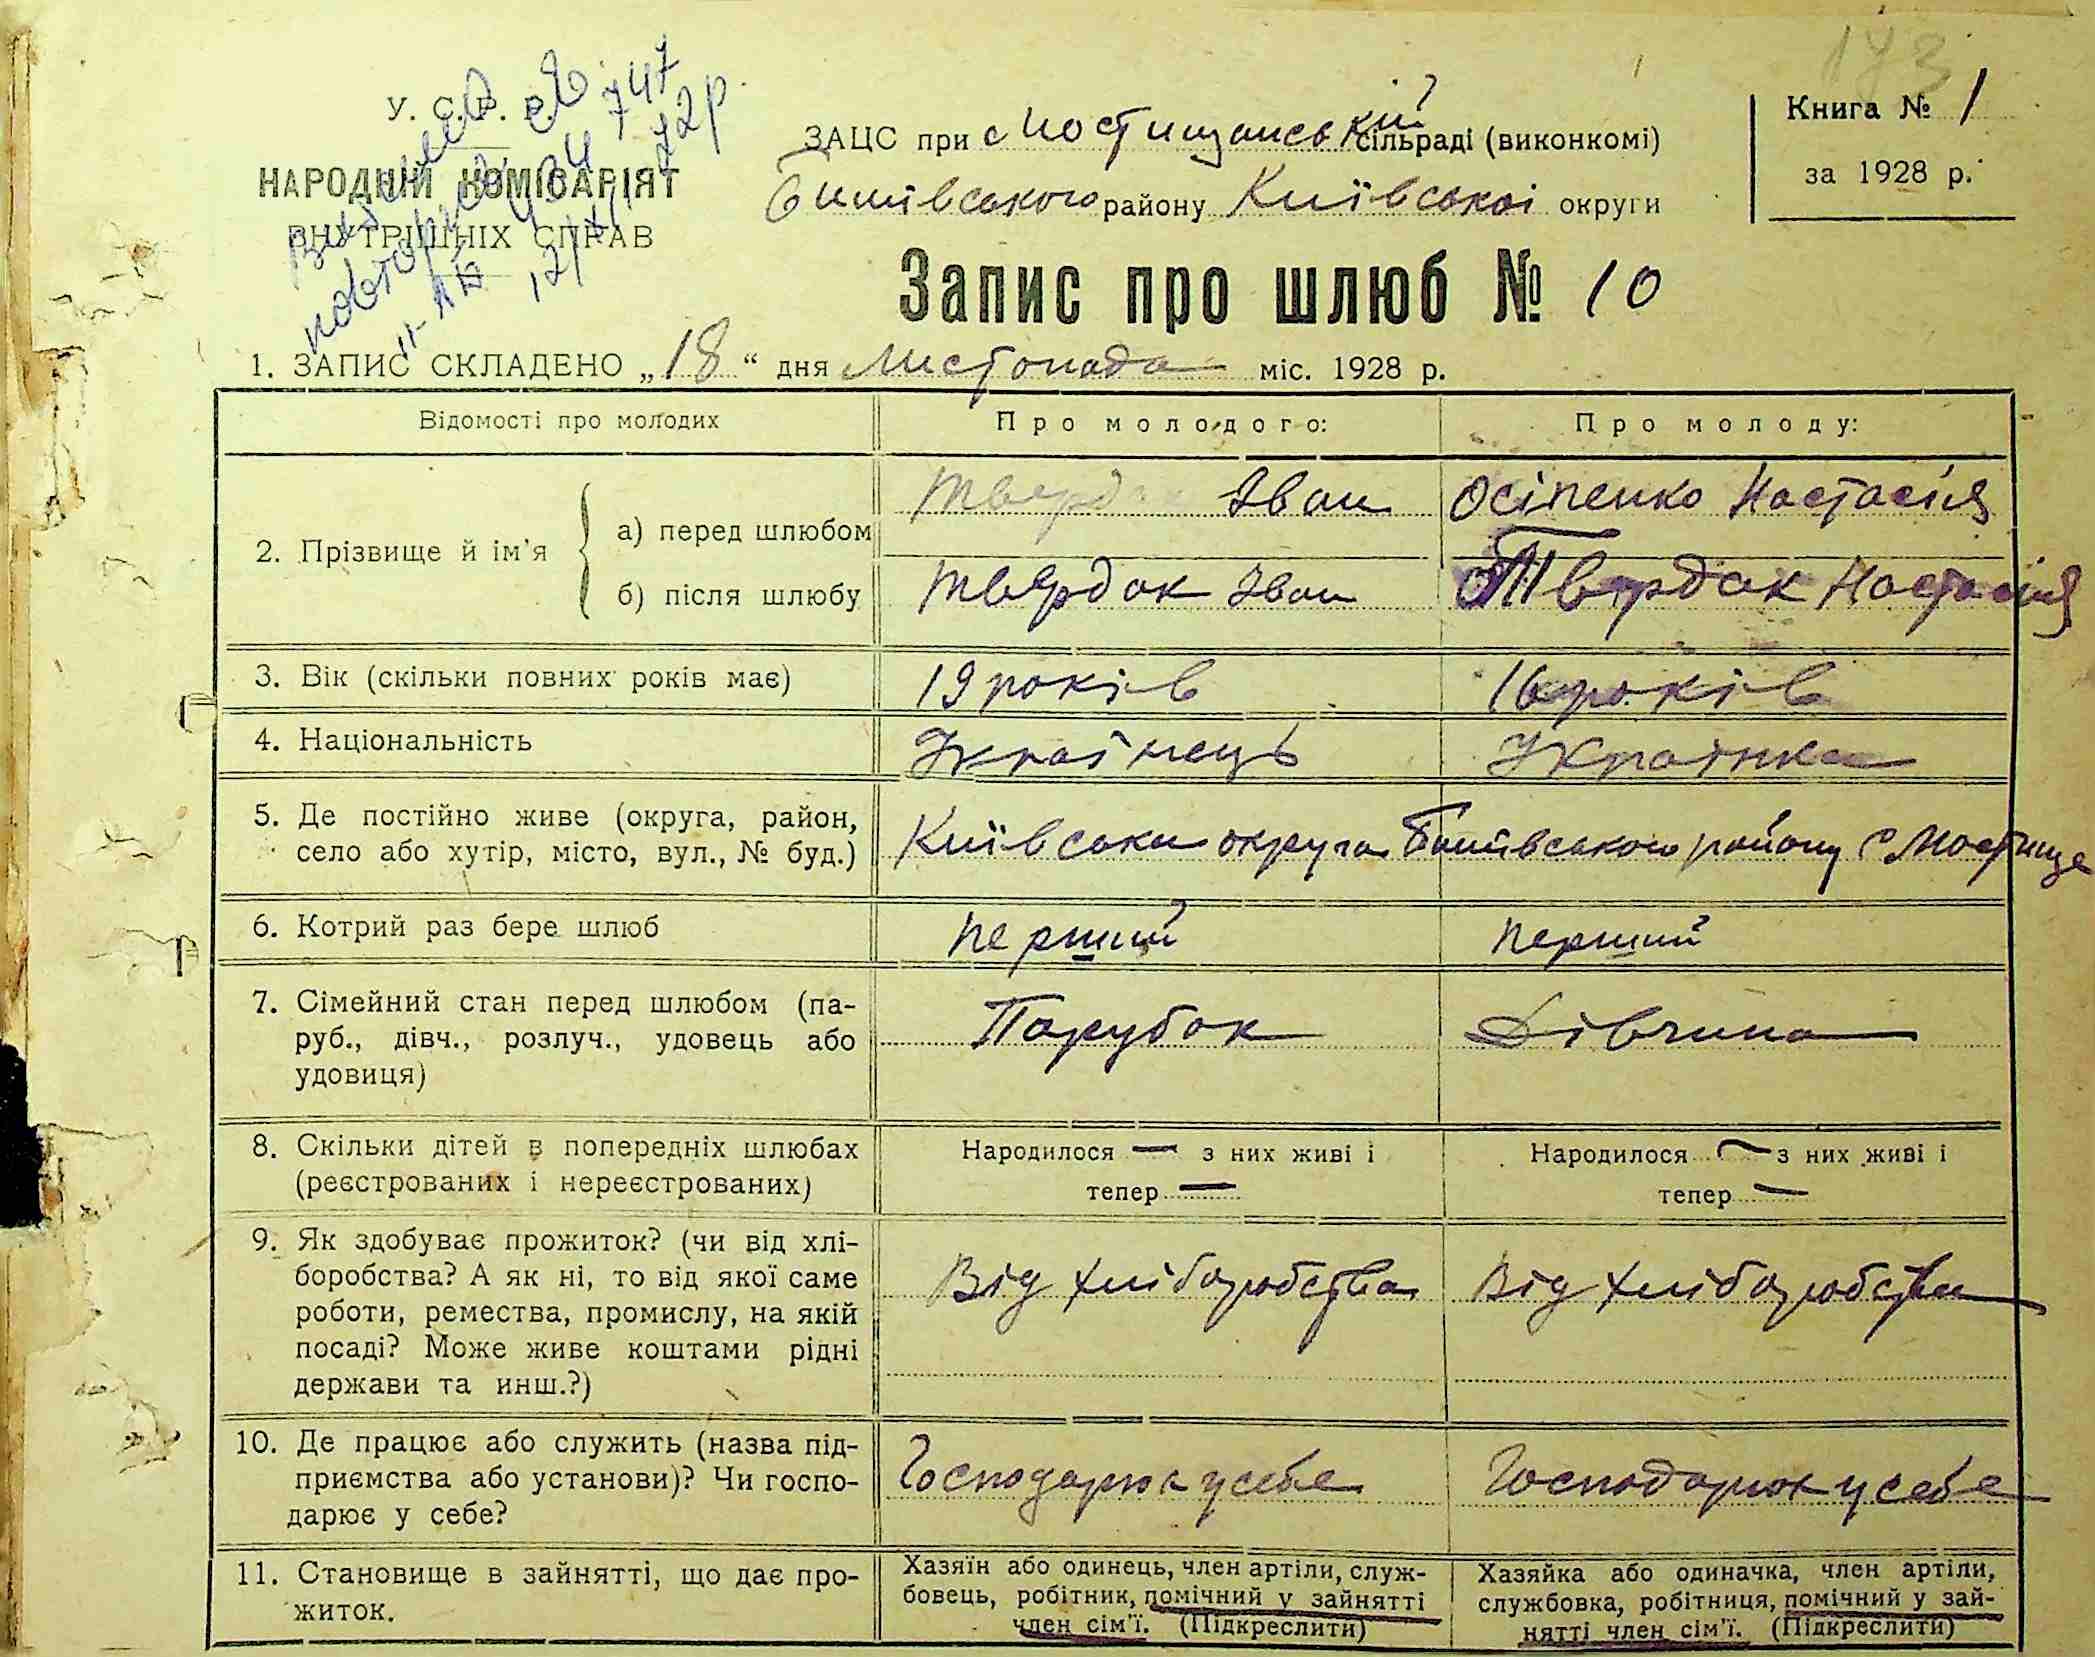 173
У. С. Р. Р.
НАРОДНІЙ КОМІСАРІЯТ
ВНУТРІШНІХ СПРАВ
Видане
повторне
II-
747
12/XI 72р.
ЗАЦС при с Мостищанській сільраді (виконкомі)
Бишівського району Київської округи
Книга № 1
за 1928 р.
Запис про шлюб № 10
1. ЗАПИС СКЛАДЕНО „18“ дня Листопада міс. 1928 р.
Відомості про молодих
Про молодого:
Про молоду:
2. Прізвище й ім'я
а) перед шлюбом
Твердак Іван
Осіпенко Настасія
б) після шлюбу
Твярдак Іван
Твердак Настасія
3. Вік (скільки повних років має)
19 років
16 років
4. Національність
Українець
Українка
5. Де постійно живе (округа, район,
село або хутір, місто, вул., № буд.)
Київська округа Бишівського району с Мостище
6. Котрий раз бере шлюб
перший
перший
7. Сімейний стан перед шлюбом (па-
руб., дівч., розлуч., удовець або
удовиця)
Парубок
Дівчина
8. Скільки дітей в попередніх шлюбах
(реєстрованих і нереєстрованих)
Народилося — з них живі і
тепер —
Народилося — з них живі і
тепер —
9. Як здобуває прожиток? (чи від хлі-
боробства? А як ні, то від якої саме
роботи, ремества, промислу, на якій
посаді? Може живе коштами рідні
держави та инш.?)
Від хліборобства
Від хліборобства
10. Де працює або служить (назва під-
приємства або установи)? Чи госпо-
дарює у себе?
Господарює у себе
Господарює у себе
11. Становище в зайнятті, що дає про-
житок.
Хазяїн або одинець, член артіли, служ-
бовець, робітник, помічний у зайнятті
член сім'ї. (Підкреслити)
Хазяйка або одиначка, член артіли,
службовка, робітниця, помічний у зай-
нятті член сім'ї. (Підкреслити)